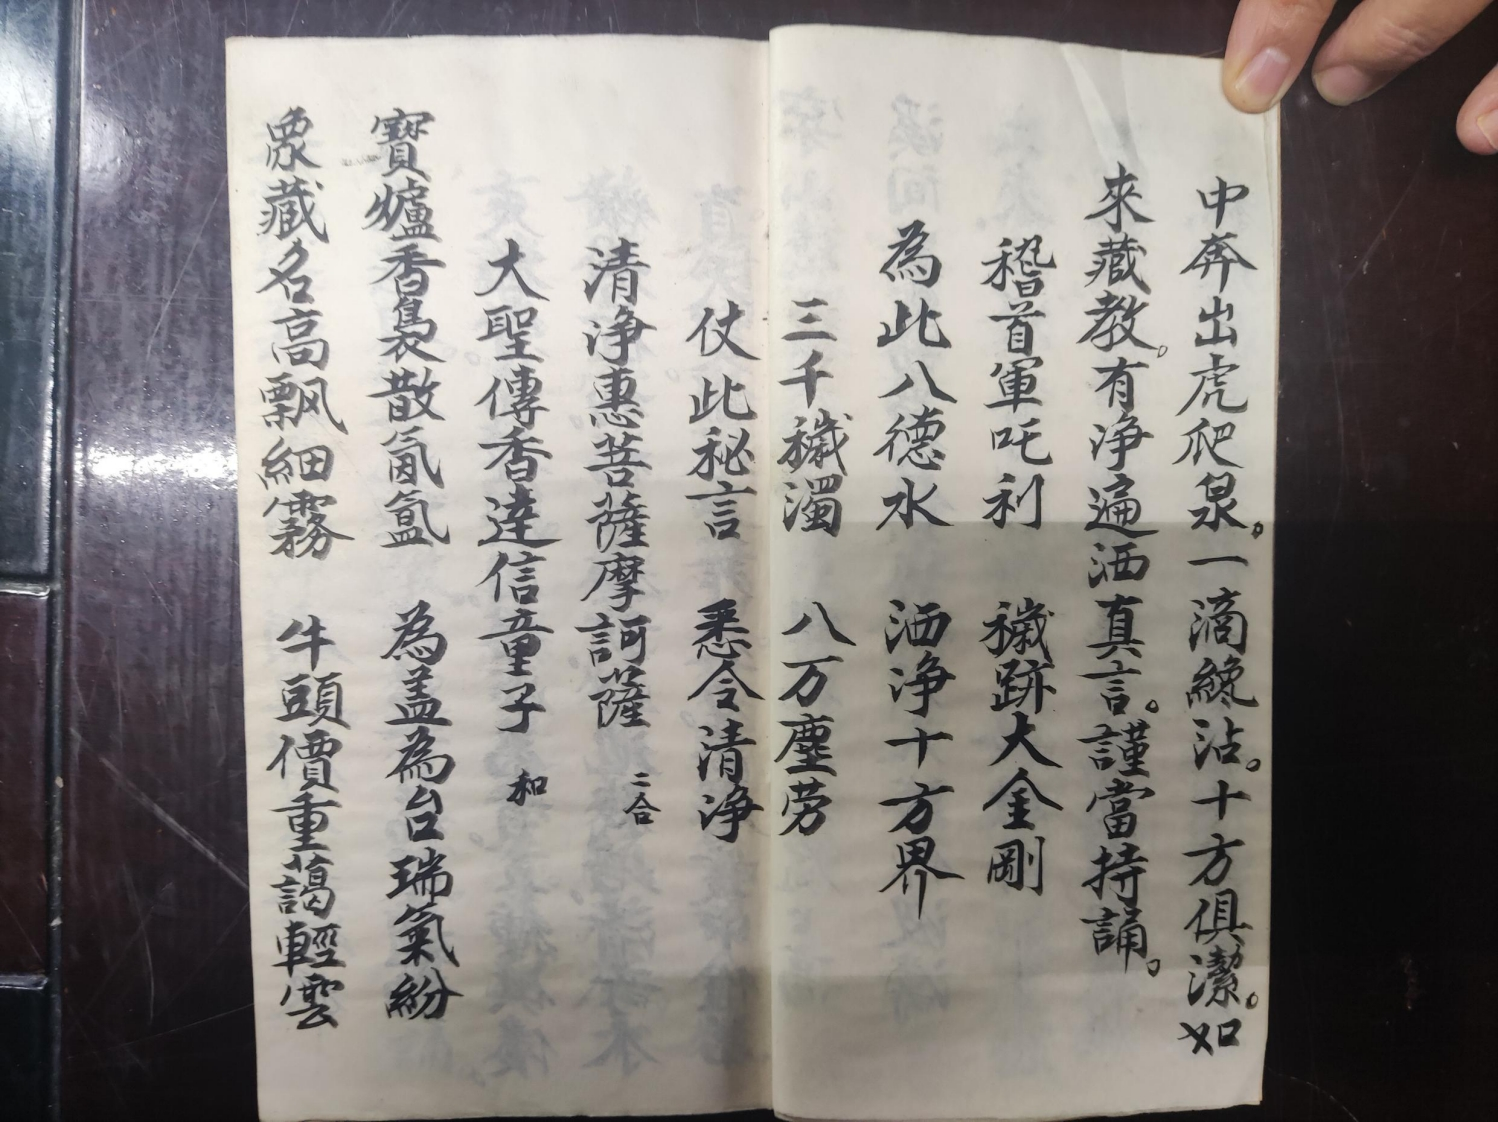 中奔出虎爬泉。一滴纔沾。十方俱潔。如
來藏教。有净遍洒真言。謹當持誦。
稽首軍吒利 穢跡大金剛
為此八德水 洒净十方界
三千穢濁 八万塵劳
仗此秘言 悉令清净
清净惠菩薩摩訶薩 二合
大聖傳香達信童子 和
寶爐香裊散氤氳 為盖為台瑞氣紛
象藏名高飘細霧 牛頭價重藹輕雲